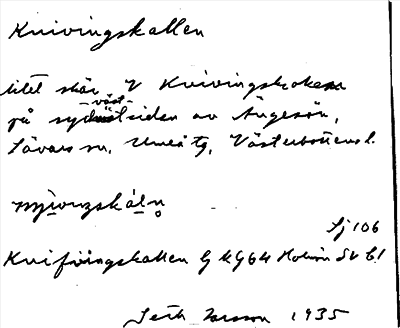 Knivingskallen
litet skär V Kvivingskroken
på sydväst-sidan av Ängesön,
Sävars sn, Umeå tg, Västerbottens l.
Sj 106
Knifvingskallen G K 964 Holmön SV bl
Seth Larsson 1935